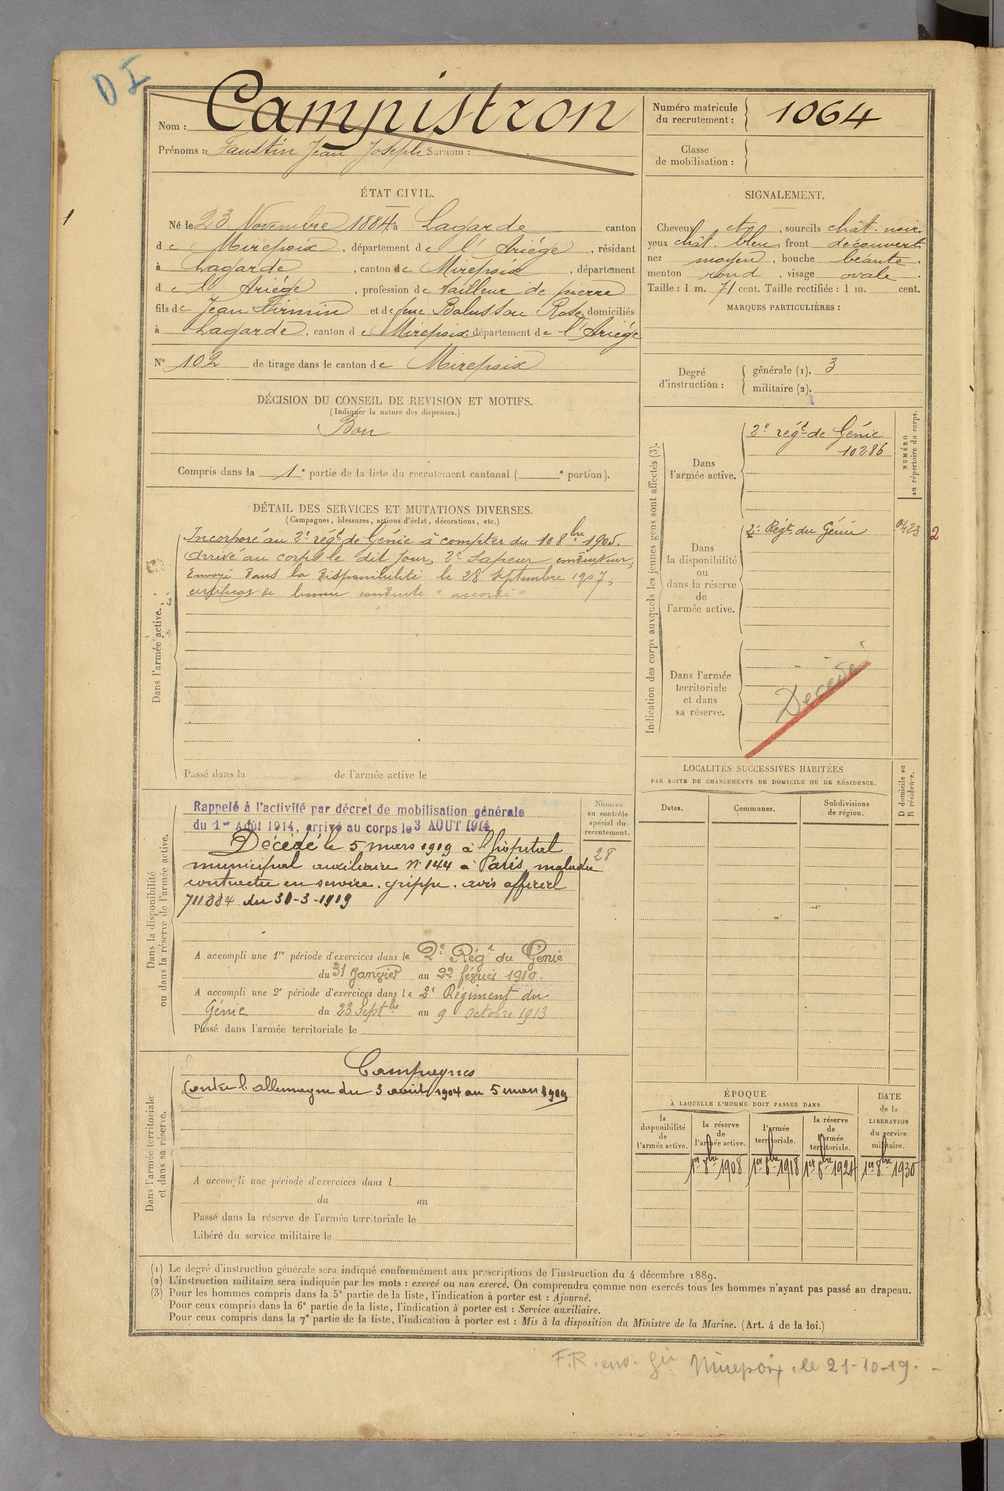 D I
Nom : Campistron
Prénoms : Faustin Jean Joseph Surnom :
Numéro matricule du recrutement : 1064
Classe de mobilisation :
ÉTAT CIVIL.
Né le 23 Novembre 1884 à Lagarde canton
de Mirepoix, département de l'Ariége, résidant
à Lagarde, canton de Mirepoix, département
de l'Ariége, profession de tailleur de pierre
fils de Jean Firmin et de feue Balussou Rose, domiciliés
à Lagarde, canton de Mirepoix département de l'Ariége
N° 102 de tirage dans le canton de Mirepoix
SIGNALEMENT.
Cheveux et, sourcils chât. noir.
yeux chât. bleu, front découvert
nez moyen, bouche béante.
menton rond, visage ovale.
Taille : 1 m. 71 cent. Taille rectifiée : 1 m. cent.
MARQUES PARTICULIÈRES :
Degré d'instruction : générale (1). 3
militaire (2).
DÉCISION DU CONSEIL DE REVISION ET MOTIFS.
(Indiquer la nature des dispenses.)
Bon
Compris dans la 1e partie de la liste du recrutement cantonal ( e portion).
DÉTAIL DES SERVICES ET MUTATIONS DIVERSES.
(Campagnes, blessures, actions d'éclat, décorations, etc.)
Dans l'armée active.
Incorporé au 2e régt de Génie à compter du 10 8bre 1905.
Arrivé au corps le dit jour, 2e Sapeur conducteur,
Envoyé dans la disponibilité le 28 Septembre 1907,
certificat de bonne conduite "accordé"
Passé dans la de l'armée active le
Indication des corps auxquels les jeunes gens sont affectés (3).
NUMÉRO au répertoire du corps.
Dans l'armée active.
2e régt de Génie
10286
Dans la disponibilité ou dans la réserve de l'armée active.
2e Régt du Génie
2
Dans l'armée territoriale et dans sa réserve.
Décédé
LOCALITÉS SUCCESSIVES HABITÉES
PAR SUITE DE CHANGEMENTS DE DOMICILE OU DE RÉSIDENCE.
Dates. Communes. Subdivisions de région. D domicile ou R résidence.
Dans la disponibilité ou dans la réserve de l'armée active.
Numéro au contrôle spécial du recrutement.
28
Rappelé à l'activité par décret de mobilisation générale
du 1er Août 1914, arrivé au corps le 3 AOUT 1914
Décédé le 5 mars 1919 à l'hôpital
municipal auxiliaire n° 144 à Paris maladie
contractée en service. grippe. avis officiel
du 30-3-1919
A accompli une 1re période d'exercices dans le 2e Régt du Génie
du 31 Janvier au 22 février 1910.
A accompli une 2e période d'exercices dans le 2e Régiment du
Génie du 23 Septbre au 9 Octobre 1913
Passé dans l'armée territoriale le
Dans l'armée territoriale et dans sa réserve.
Campagnes
Contre l'allemagne du 3 août 1914 au 5 mars 1919
A accompli une période d'exercices dans l
du au
Passé dans la réserve de l'armée territoriale le
Libéré du service militaire le
ÉPOQUE
À LAQUELLE L'HOMME DOIT PASSER DANS
la disponibilité de l'armée active.
la réserve de l'armée active.
l'armée territoriale.
la réserve de l'armée territoriale.
DATE de la LIBÉRATION du service militaire.
1er 8bre 1908 1er 8bre 1918 1er 8bre 1924 1er 8bre 1930
(1) Le degré d'instruction générale sera indiqué conformément aux prescriptions de l'instruction du 4 décembre 1889.
(2) L'instruction militaire sera indiquée par les mots : exercé ou non exercé. On comprendra comme non exercés tous les hommes n'ayant pas passé au drapeau.
(3) Pour les hommes compris dans la 5e partie de la liste, l'indication à porter est : Ajourné.
Pour ceux compris dans la 6e partie de la liste, l'indication à porter est : Service auxiliaire.
Pour ceux compris dans la 7e partie de la liste, l'indication à porter est : Mis à la disposition du Ministre de la Marine. (Art. 4 de la loi.)
F.R. env. Gie Mirepoix, le 21-10-19.